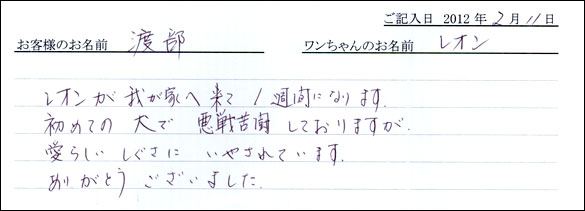 ご記入日 2012年2月11日
お客様のお名前 渡部 ワンちゃんのお名前 レオン
レオンが我が家へ来て1週間になります.
初めての犬で悪戦苦闘しておりますが.
愛らしいしぐさにいやされています.
ありがとうございました.